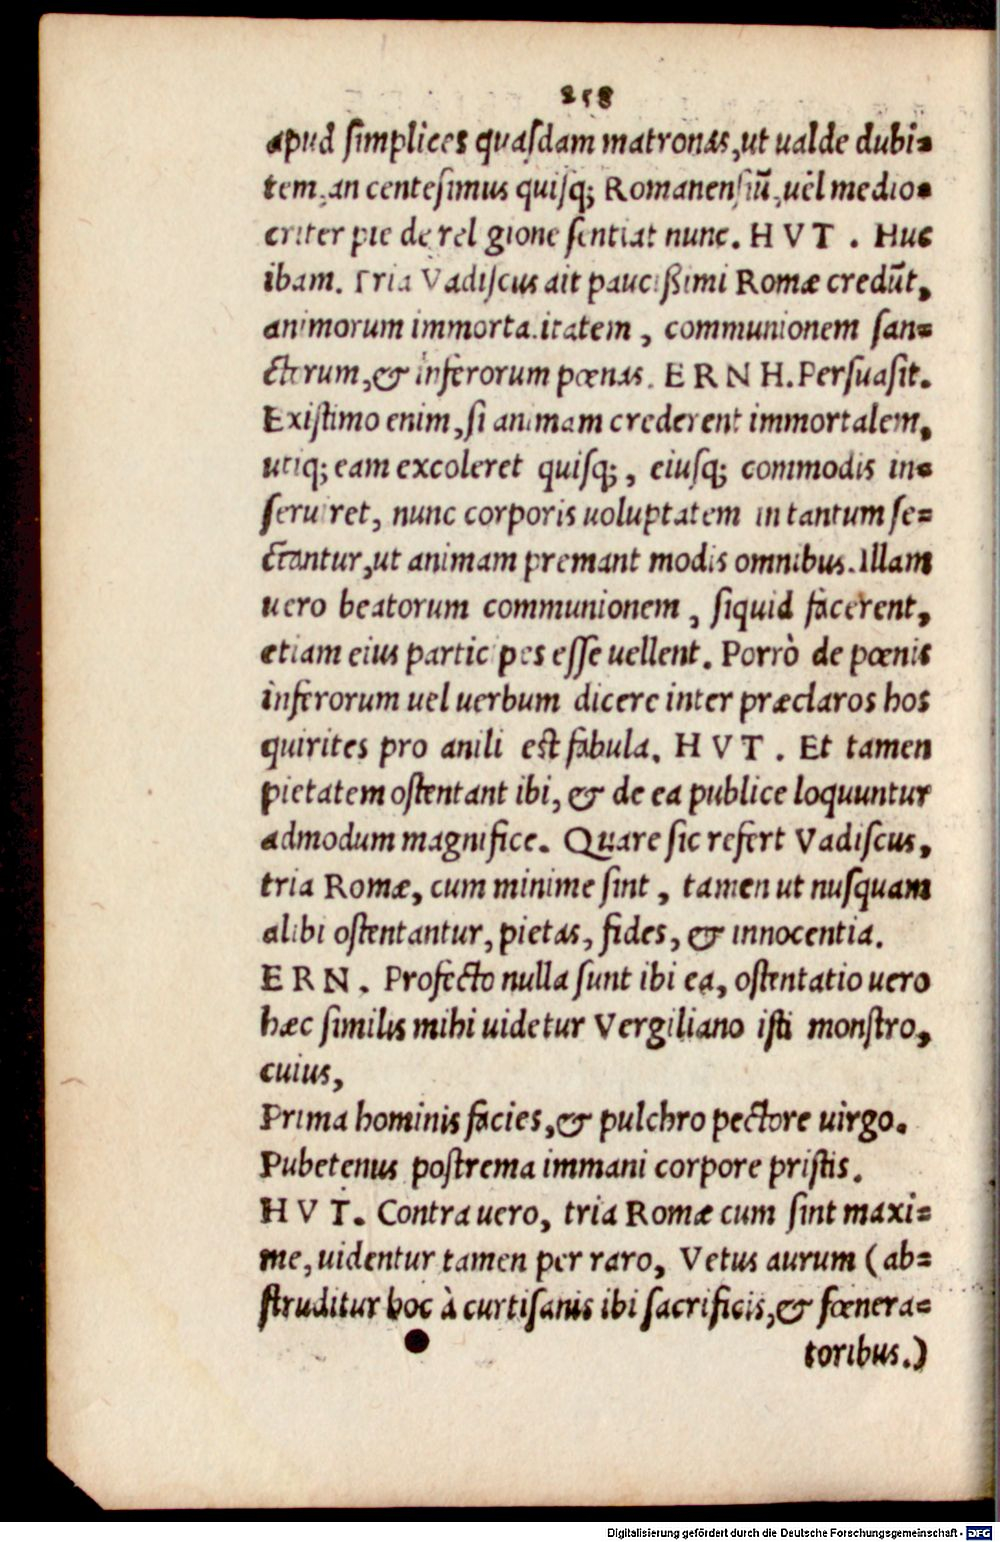 258
apud ſimplices quaſdam matronas, ut ualde dubi=
tem, an centeſimus quiſq; Romanenſiū, uel medio=
criter pie de religione ſentiat nunc. H V T . Huc
ibam. Tria Vadiſcus ait pauciſſimi Romæ credūt,
animorum immortalitatem , communionem ſan=
ctorum, & inferorum pœnas. E R N H. Perſuaſit.
Exiſtimo enim, ſi animam crederent immortalem,
utiq; eam excoleret quiſq; , eiuſq; commodis in=
ſeruiret, nunc corporis uoluptatem in tantum ſe=
ctantur, ut animam premant modis omnibus. Illam
uero beatorum communionem , ſiquid facerent,
etiam eius participes eſſe uellent. Porrò de pœnis
inferorum uel uerbum dicere inter præclaros hos
quirites pro anili eſt fabula. H V T . Et tamen
pietatem oſtentant ibi, & de ea publice loquuntur
admodum magnifice. Quare ſic refert Vadiſcus,
tria Romæ, cum minime ſint , tamen ut nuſquam
alibi oſtentantur, pietas, fides, & innocentia.
E R N . Profecto nulla ſunt ibi ea, oſtentatio uero
hæc ſimilis mihi uidetur Vergiliano iſti monſtro,
cuius,
Prima hominis facies, & pulchro pectore uirgo.
Pubetenus poſtrema immani corpore priſtis.
H V T. Contra uero, tria Romæ cum ſint maxi=
me, uidentur tamen per raro, Vetus aurum ( ab=
ſtruditur hoc à curtiſanis ibi ſacrificis, & fœnera=
toribus.)
Digitalisierung gefördert durch die Deutsche Forschungsgemeinschaft - DFG